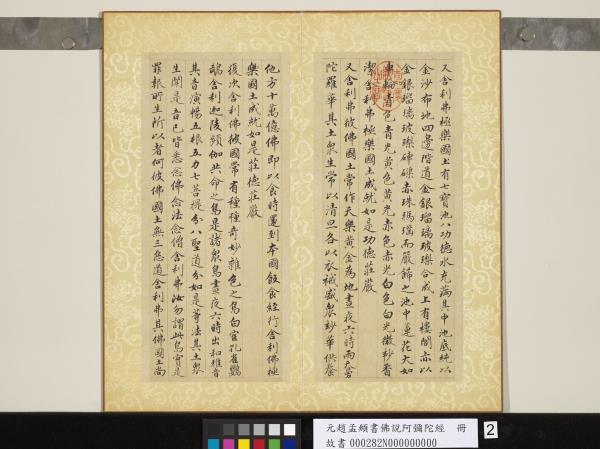 又舍利弗極樂國土有七寶池八功德水充滿其中池底純以
金沙布地四邊階道金銀瑠璃玻瓈合成上有樓閣亦以
金銀瑠璃玻瓈硨磲赤珠碼瑙而嚴飾之池中蓮花大如
車輪青色青光黃色黃光赤色赤光白色白光微妙香
潔舍利弗極樂國土成就如是功德莊嚴
又舍利弗彼佛國土常作天樂黃金為地晝夜六時而雨曼
陀羅華其土眾生常以清旦各以衣祴盛眾妙華供養
他方十萬億佛即以食時還到本國飯食經行舍利弗極
樂國土成就如是莊德莊嚴
復次舍利弗彼國常有種種奇妙雜色之鳥白鶴孔雀鸚
鵡舍利迦陵頻伽共命之鳥是諸眾鳥晝夜六時出和雅音
其音演暢五根五力七菩提分八聖道分如是等法其土眾
生聞是音已皆悉念佛念法念僧舍利弗汝勿謂此鳥實是
罪報所生所以者何彼佛國土無三惡道舍利弗其佛國土尚
元趙孟頫書佛說阿彌陀經 冊
故書 000282N000000000
2